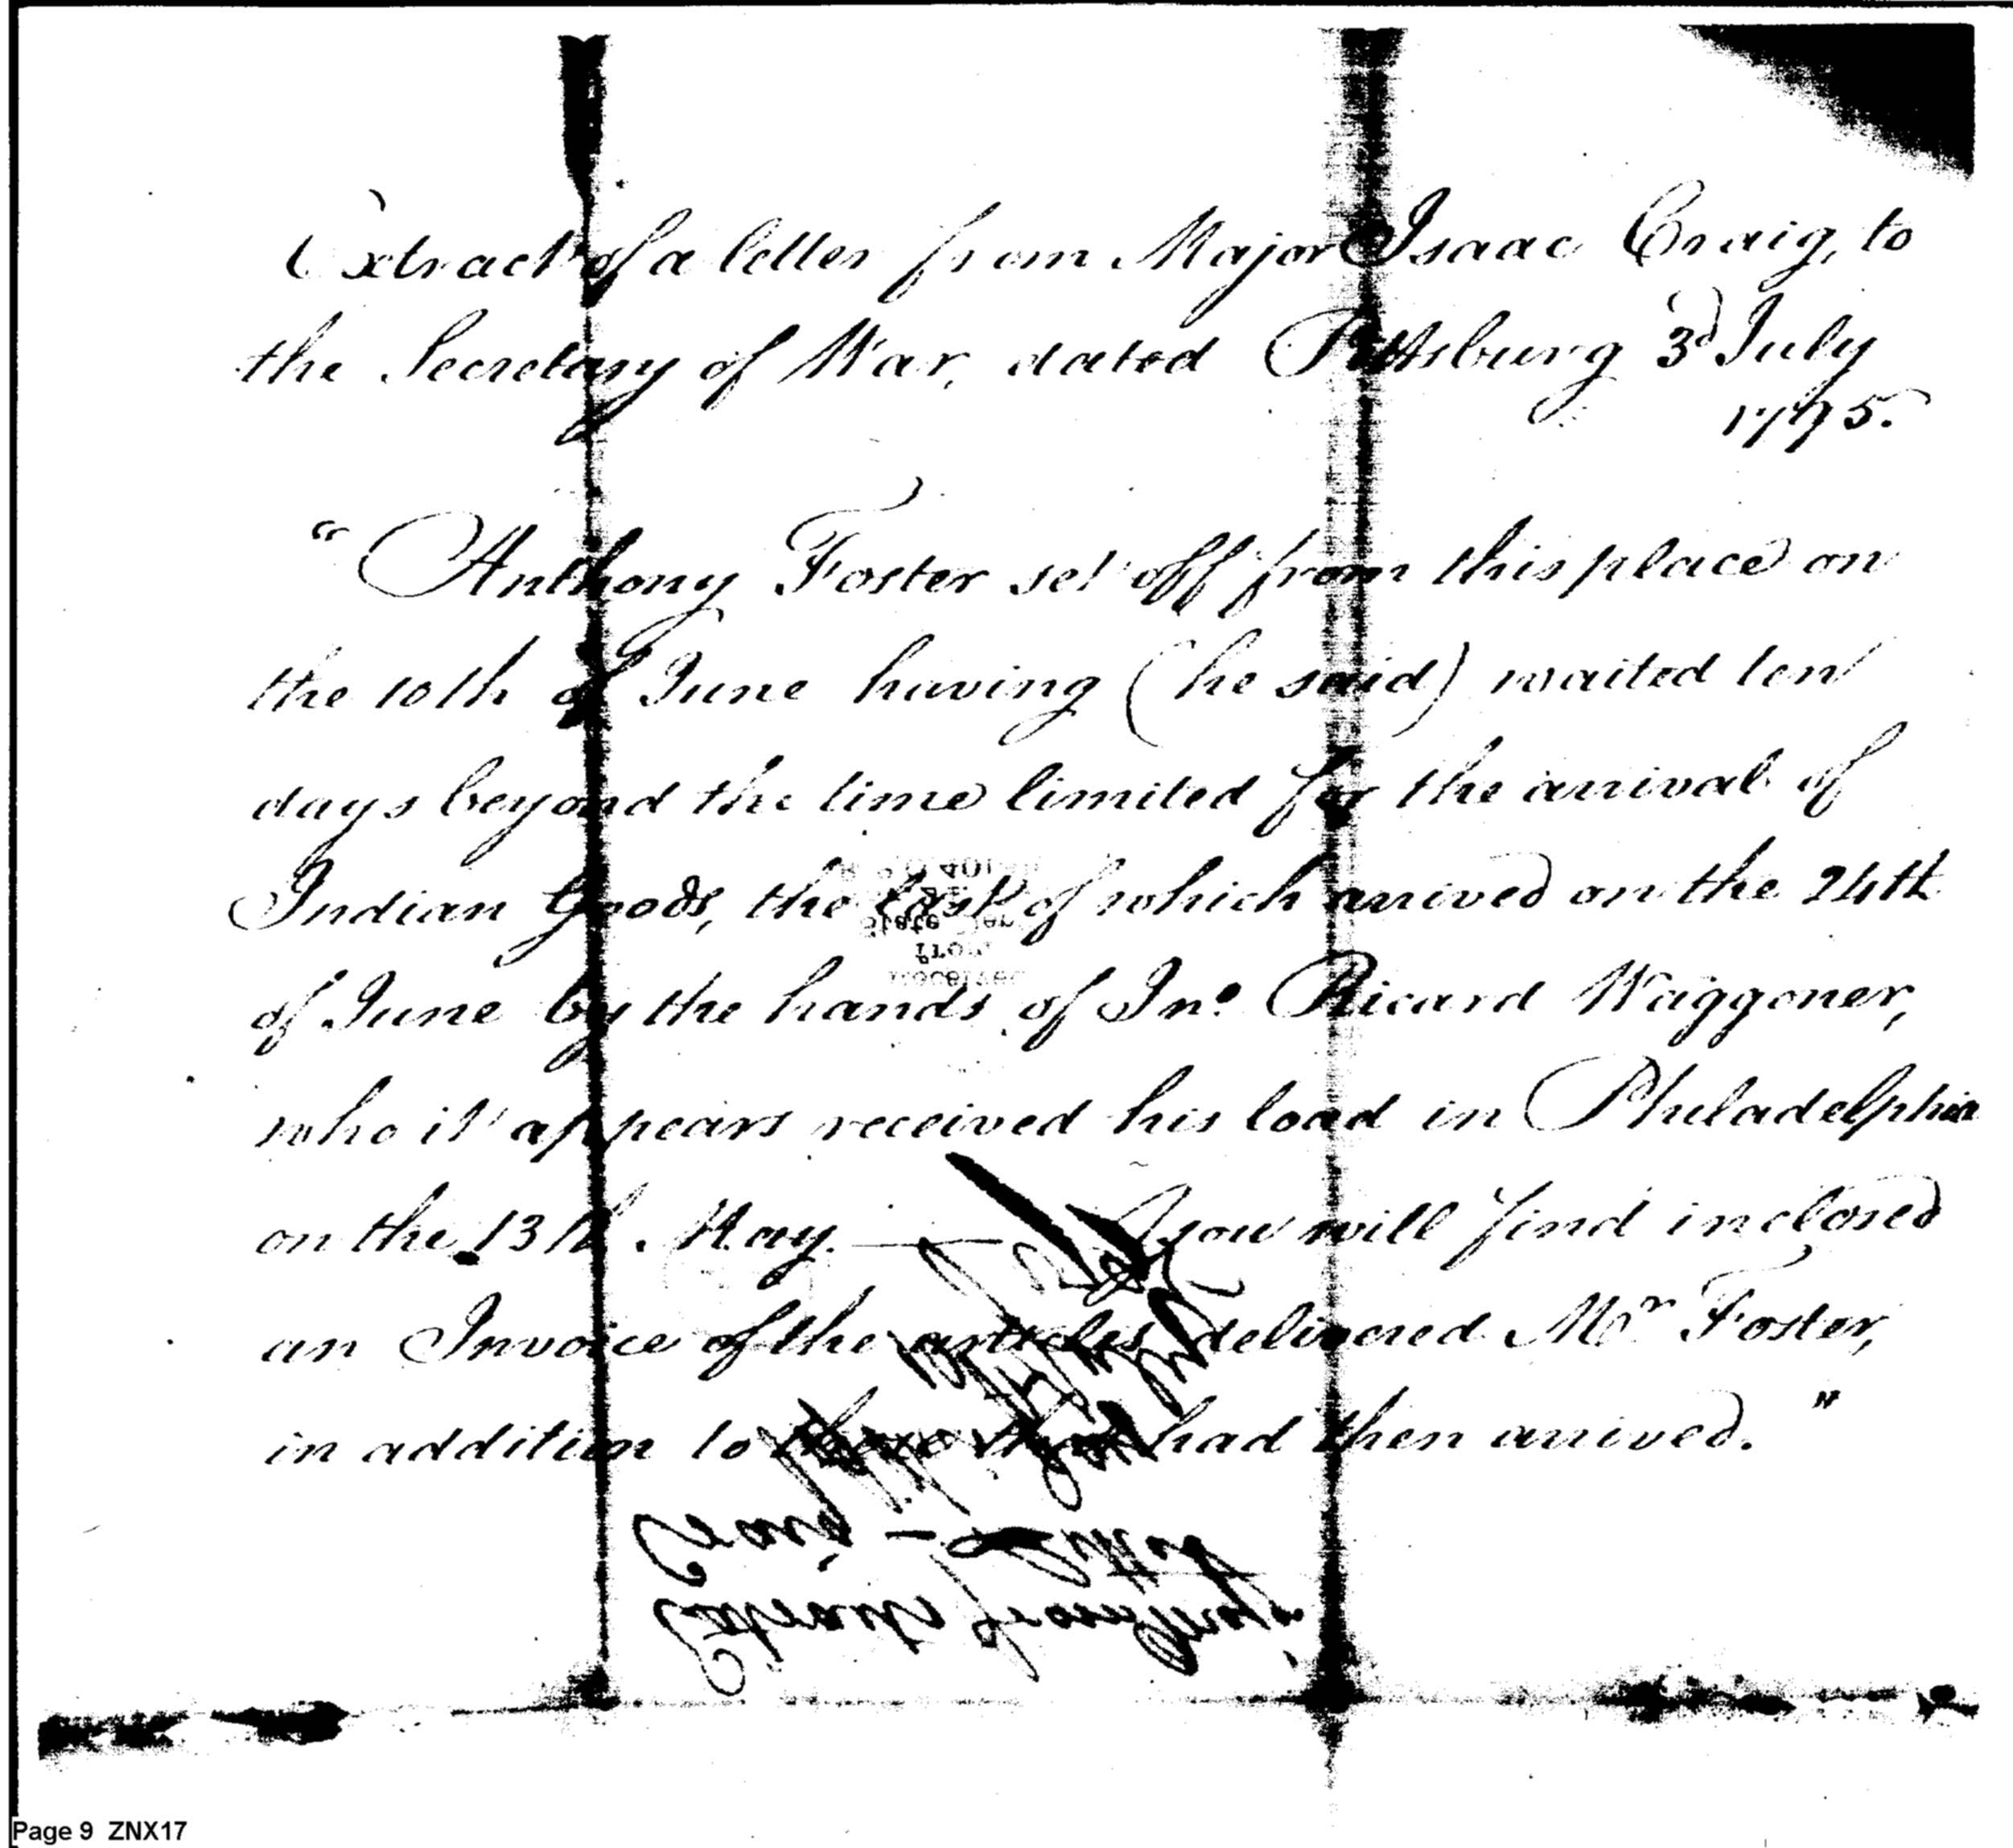 Extract of a letter from Major Isaac Craig, to
the Secretary of War, dated Pittsburg 3d July
1795.
"Anthony Foster set off from this place on
the 10th of June having (he said) waited ten
days beyond the time limited for the arrival of
Indian Goods, the last of which arrived on the 24th
of June by the hands of Jno. Ricard Waggoner,
who it appears received his load in Philadelphia
on the 13th May. — You will find inclosed
an Invoice of the articles delivered Mr Foster,
in addition to those that had then arrived."
Craig
Extracts from
Page 9 ZNX17